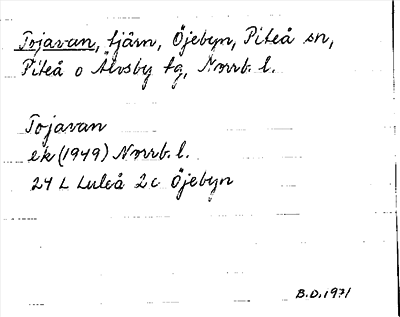 Tojavan, tjärn, Öjebyn, Piteå sn,
Piteå o Älvsby tg, Norrb. l.
Tojavan
ek (1949) Norrb. l.
24 L Luleå 2 c Öjebyn
B.D. 1971